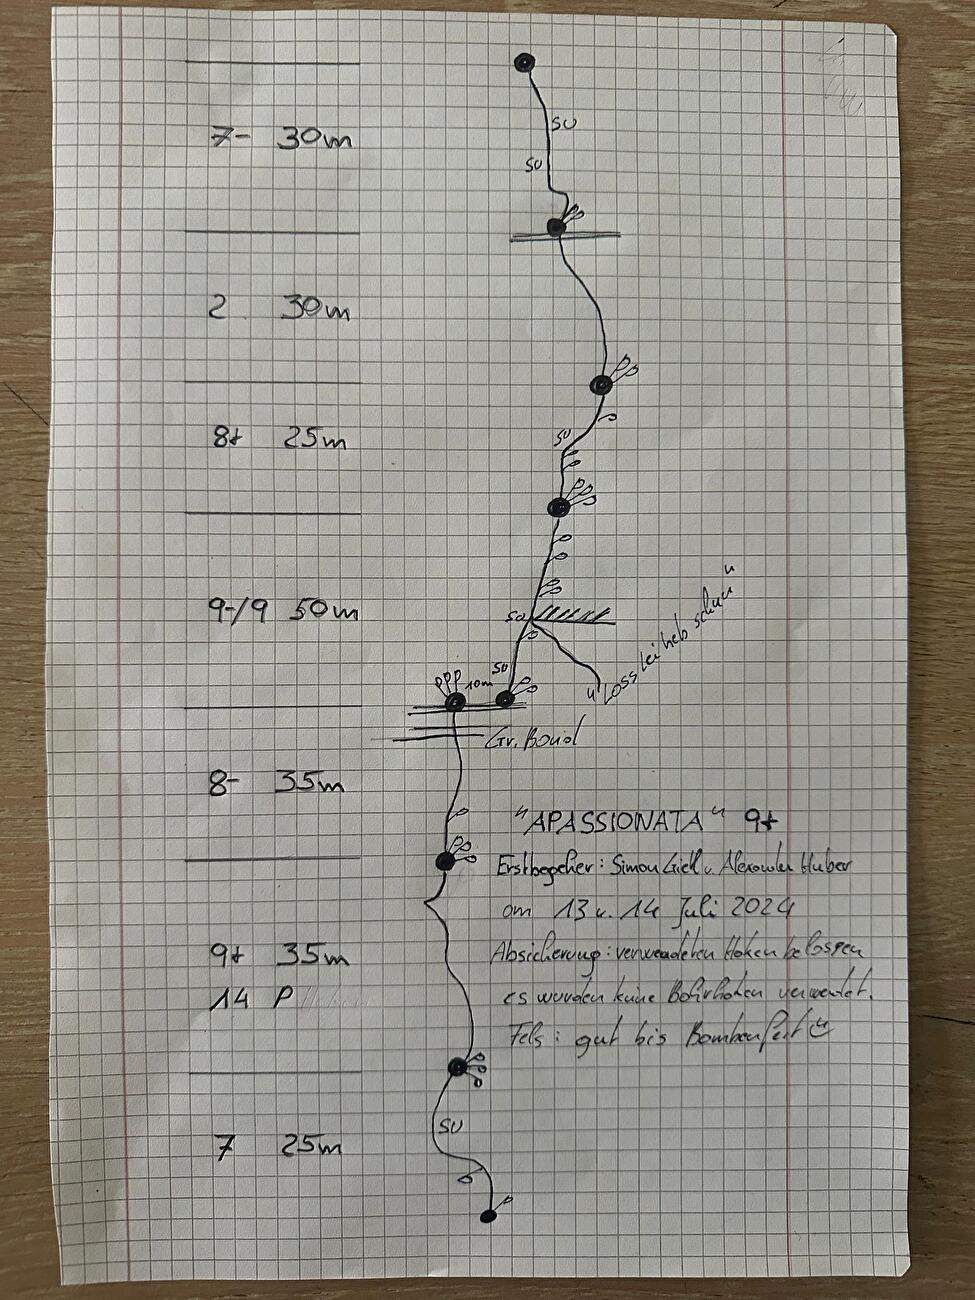 SU
7- 30m
SU
2 30m
8+ 25m
SU
9-/9 50m
SU
SU
10m
"Loss lei heb schun"
Gr. Band
8- 35m
"APASSIONATA" 9+
Erstbegeher: Simon Gietl u. Alexander Huber
am 13 u. 14 Juli 2024
9+ 35m
Absicherung: verwendeten Haken belassen
14 P
es wurden keine Bohrhaken verwendet.
Fels: gut bis Bombenfest
7 25m
SU